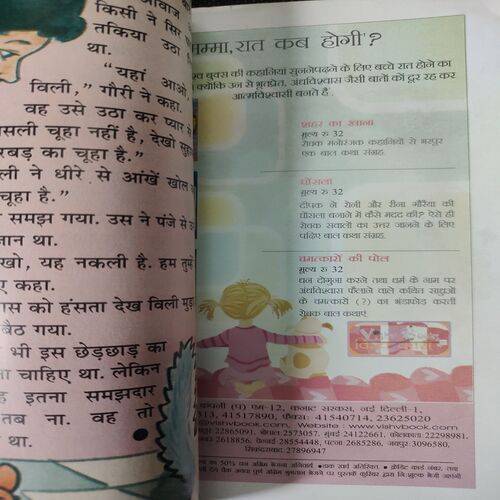 आवाज
किसी ने सिर
तकिया उठा
था.
"यहां आओ,
विली," गौरी ने कहा.
वह उसे उठा कर प्यार से
असली चूहा नहीं है, देखो
रबड़ का चूहा है."
ली ने धीरे से आंखें खोल
चूहा है."
समझ गया. उस ने पंजे से
जान था.
खो, यह नकली है. हम तुम्हें
ए कहा.
पास को हंसता देख विली मुड़
बैठ गया.
भी इस छेड़छाड़ का
ना चाहिए था. लेकिन
इतना समझदार
तब ना. वह तो
था.
मम्मा, रात कब होगी'?
बुक्स की कहानियां सुननेपढ़ने के लिए बच्चे रात होने का
क्योंकि उन से भूतप्रेत, अंधविश्वास जैसी बातों को दूर रह कर
आत्मविश्वासी बनते हैं.
शहर का खाना
मूल्य रु 32
रोचक मनोरंजक कहानियों से भरपूर
एक बाल कथा संग्रह.
घोंसला
मूल्य रु 32
दीपक ने रोनी और रीना गौरैया की
घोंसला बनाने में कैसे मदद की? ऐसे ही
रोचक सवालों का उत्तर जानने के लिए
पढ़िए बाल कथा संग्रह.
चमत्कारों की पोल
मूल्य रु 32
धन दोगुना करने तथा धर्म के नाम पर
अंधविश्वास फैलाने वाले कथित साधुओं
के चमत्कारों (?) का भंडाफोड़ करती
रोचक बाल कथाएं.
कंपनी (प) एम-12, कनाट सरकस, नई दिल्ली-1,
313, 41517890, फैक्स: 41540714, 23625020
@vishvbook.com, Website : www.vishvbook.com
22865091, भोपाल: 2573057, मुंबई 24122661, कोलकाता: 22298981,
2618856, चेन्नई 28554448, पटना: 2685286, जयपुर: 3096580,
सिकंदराबाद: 27896947
का 50% धन अग्रिम भेजना अनिवार्य